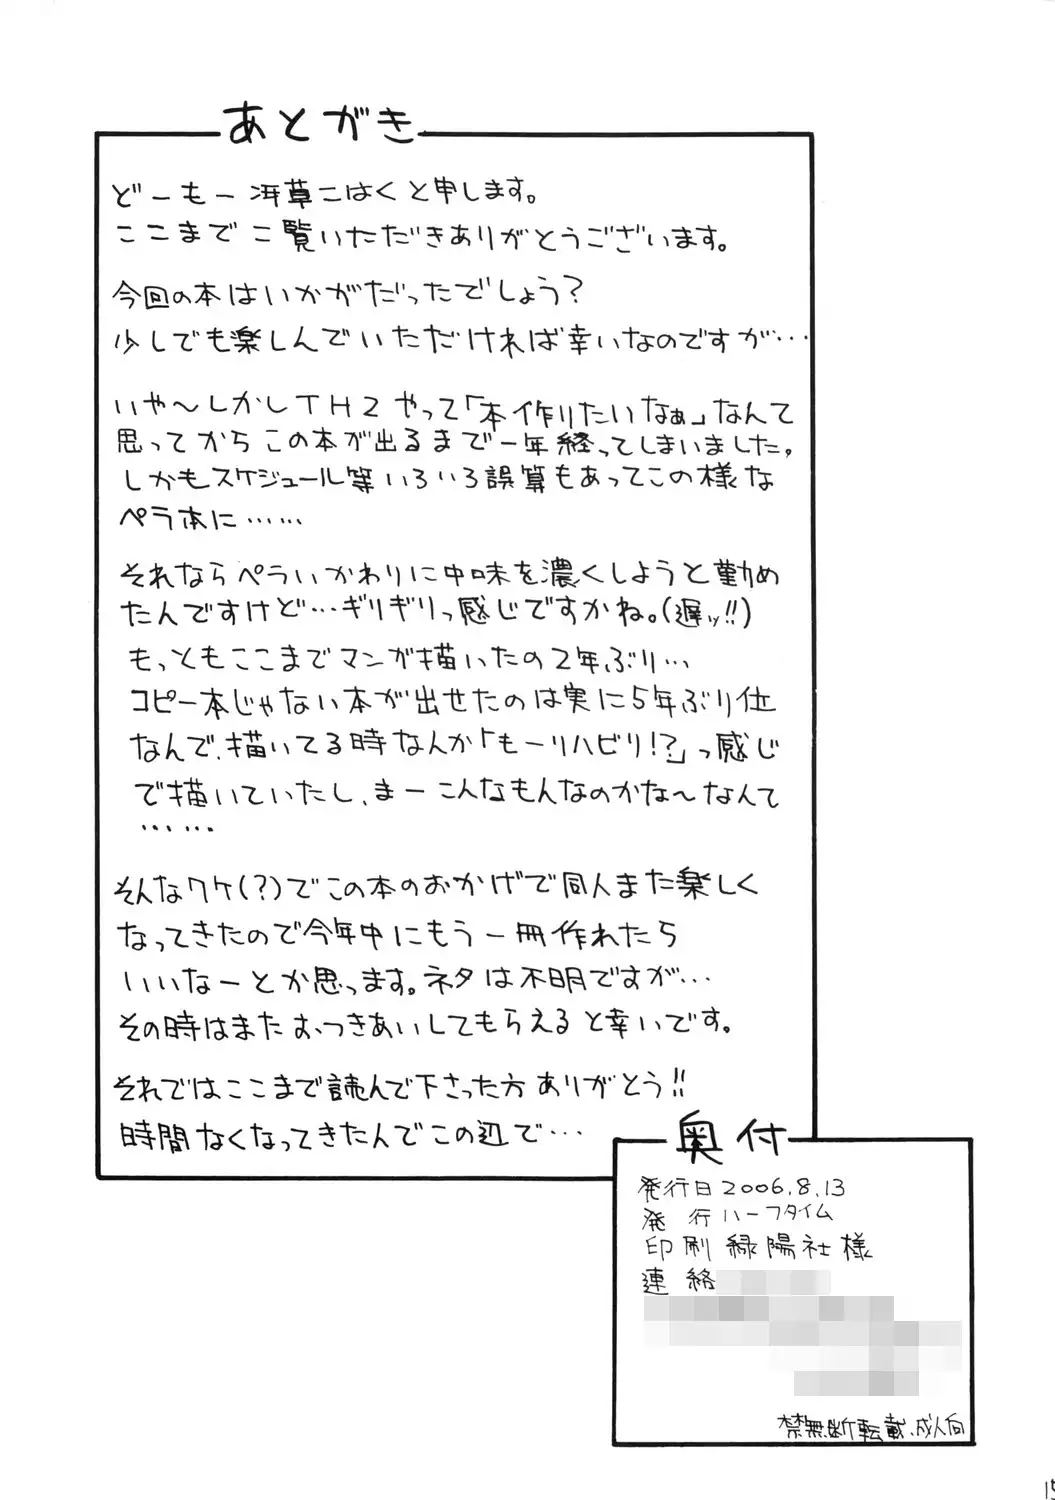 あとがき
どーもー冴草こはくと申します。
ここまでご覧いただきありがとうございます。
今回の本はいかがだったでしょう?
少しでも楽しんでいただければ幸いなのですが…
いや〜しかしTH2やって「本作りたいなぁ」なんて
思ってからこの本が出るまで一年経ってしまいました。
しかもスケジュール等いろいろ誤算もあってこの様な
ペラ本に……
それならペラいかわりに中味を濃くしようと勤め
たんですけど…ギリギリっ感じですかね。(遅ッ!!)
もっともここまでマンガ描いたの2年ぶり…
コピー本じゃない本が出せたのは実に5年ぶり位
なんで、描いてる時なんか「もーリハビリ!?」っ感じ
で描いていたし、まーこんなもんなのかな〜なんて
……
そんなワケ(?)でこの本のおかげで同人また楽しく
なってきたので今年中にもう一冊作れたら
いいなーとか思っます。ネタは不明ですが…
その時はまたおつきあいしてもらえると幸いです。
それではここまで読んで下さった方ありがとう!!
時間なくなってきたんでこの辺で…
奥付
発行日2006.8.13
発行ハーフタイム
印刷 緑陽社様
連絡
禁無断転載、成人向
15